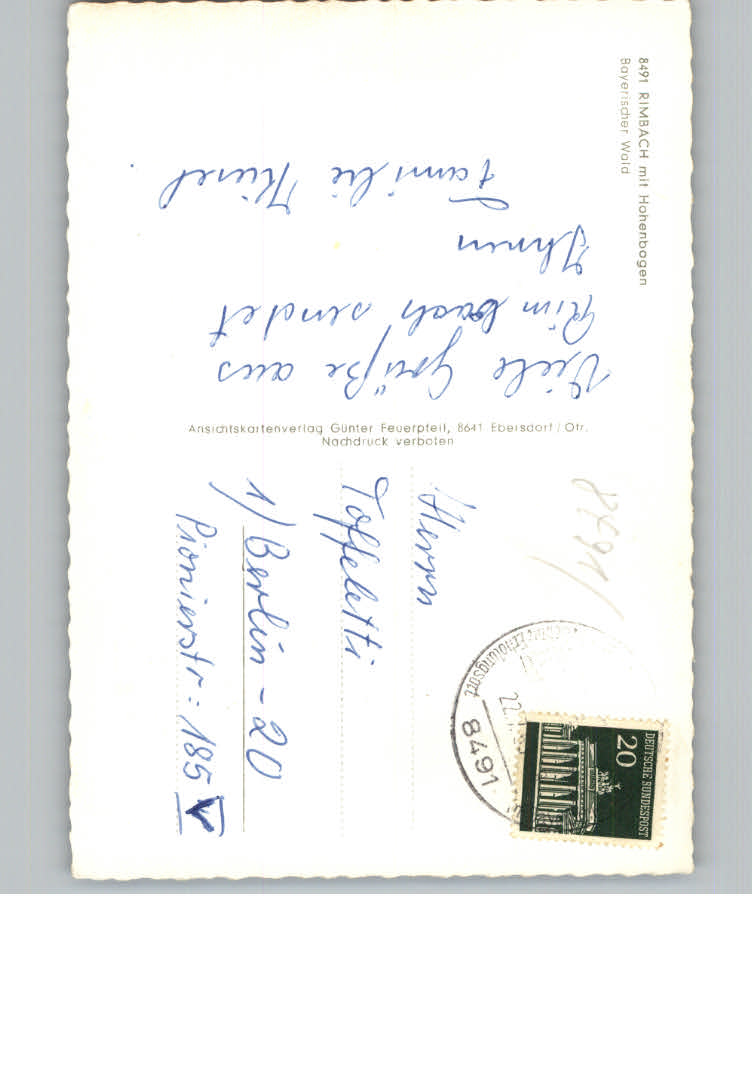 8491 RIMBACH mit Hohenbogen
Bayerischer Wald
Viele Grüße aus
Rimbach sendet
Ihnen
Familie
Ansichtskartenverlag Günter Feuerpfeil, 8641 Ebersdorf/Ofr.
Nachdruck verboten
8491
Herrn
Toffeletti
1/Berlin-20
Pionierstr: 185
8491
22.
Erholungsort
DEUTSCHE BUNDESPOST
20